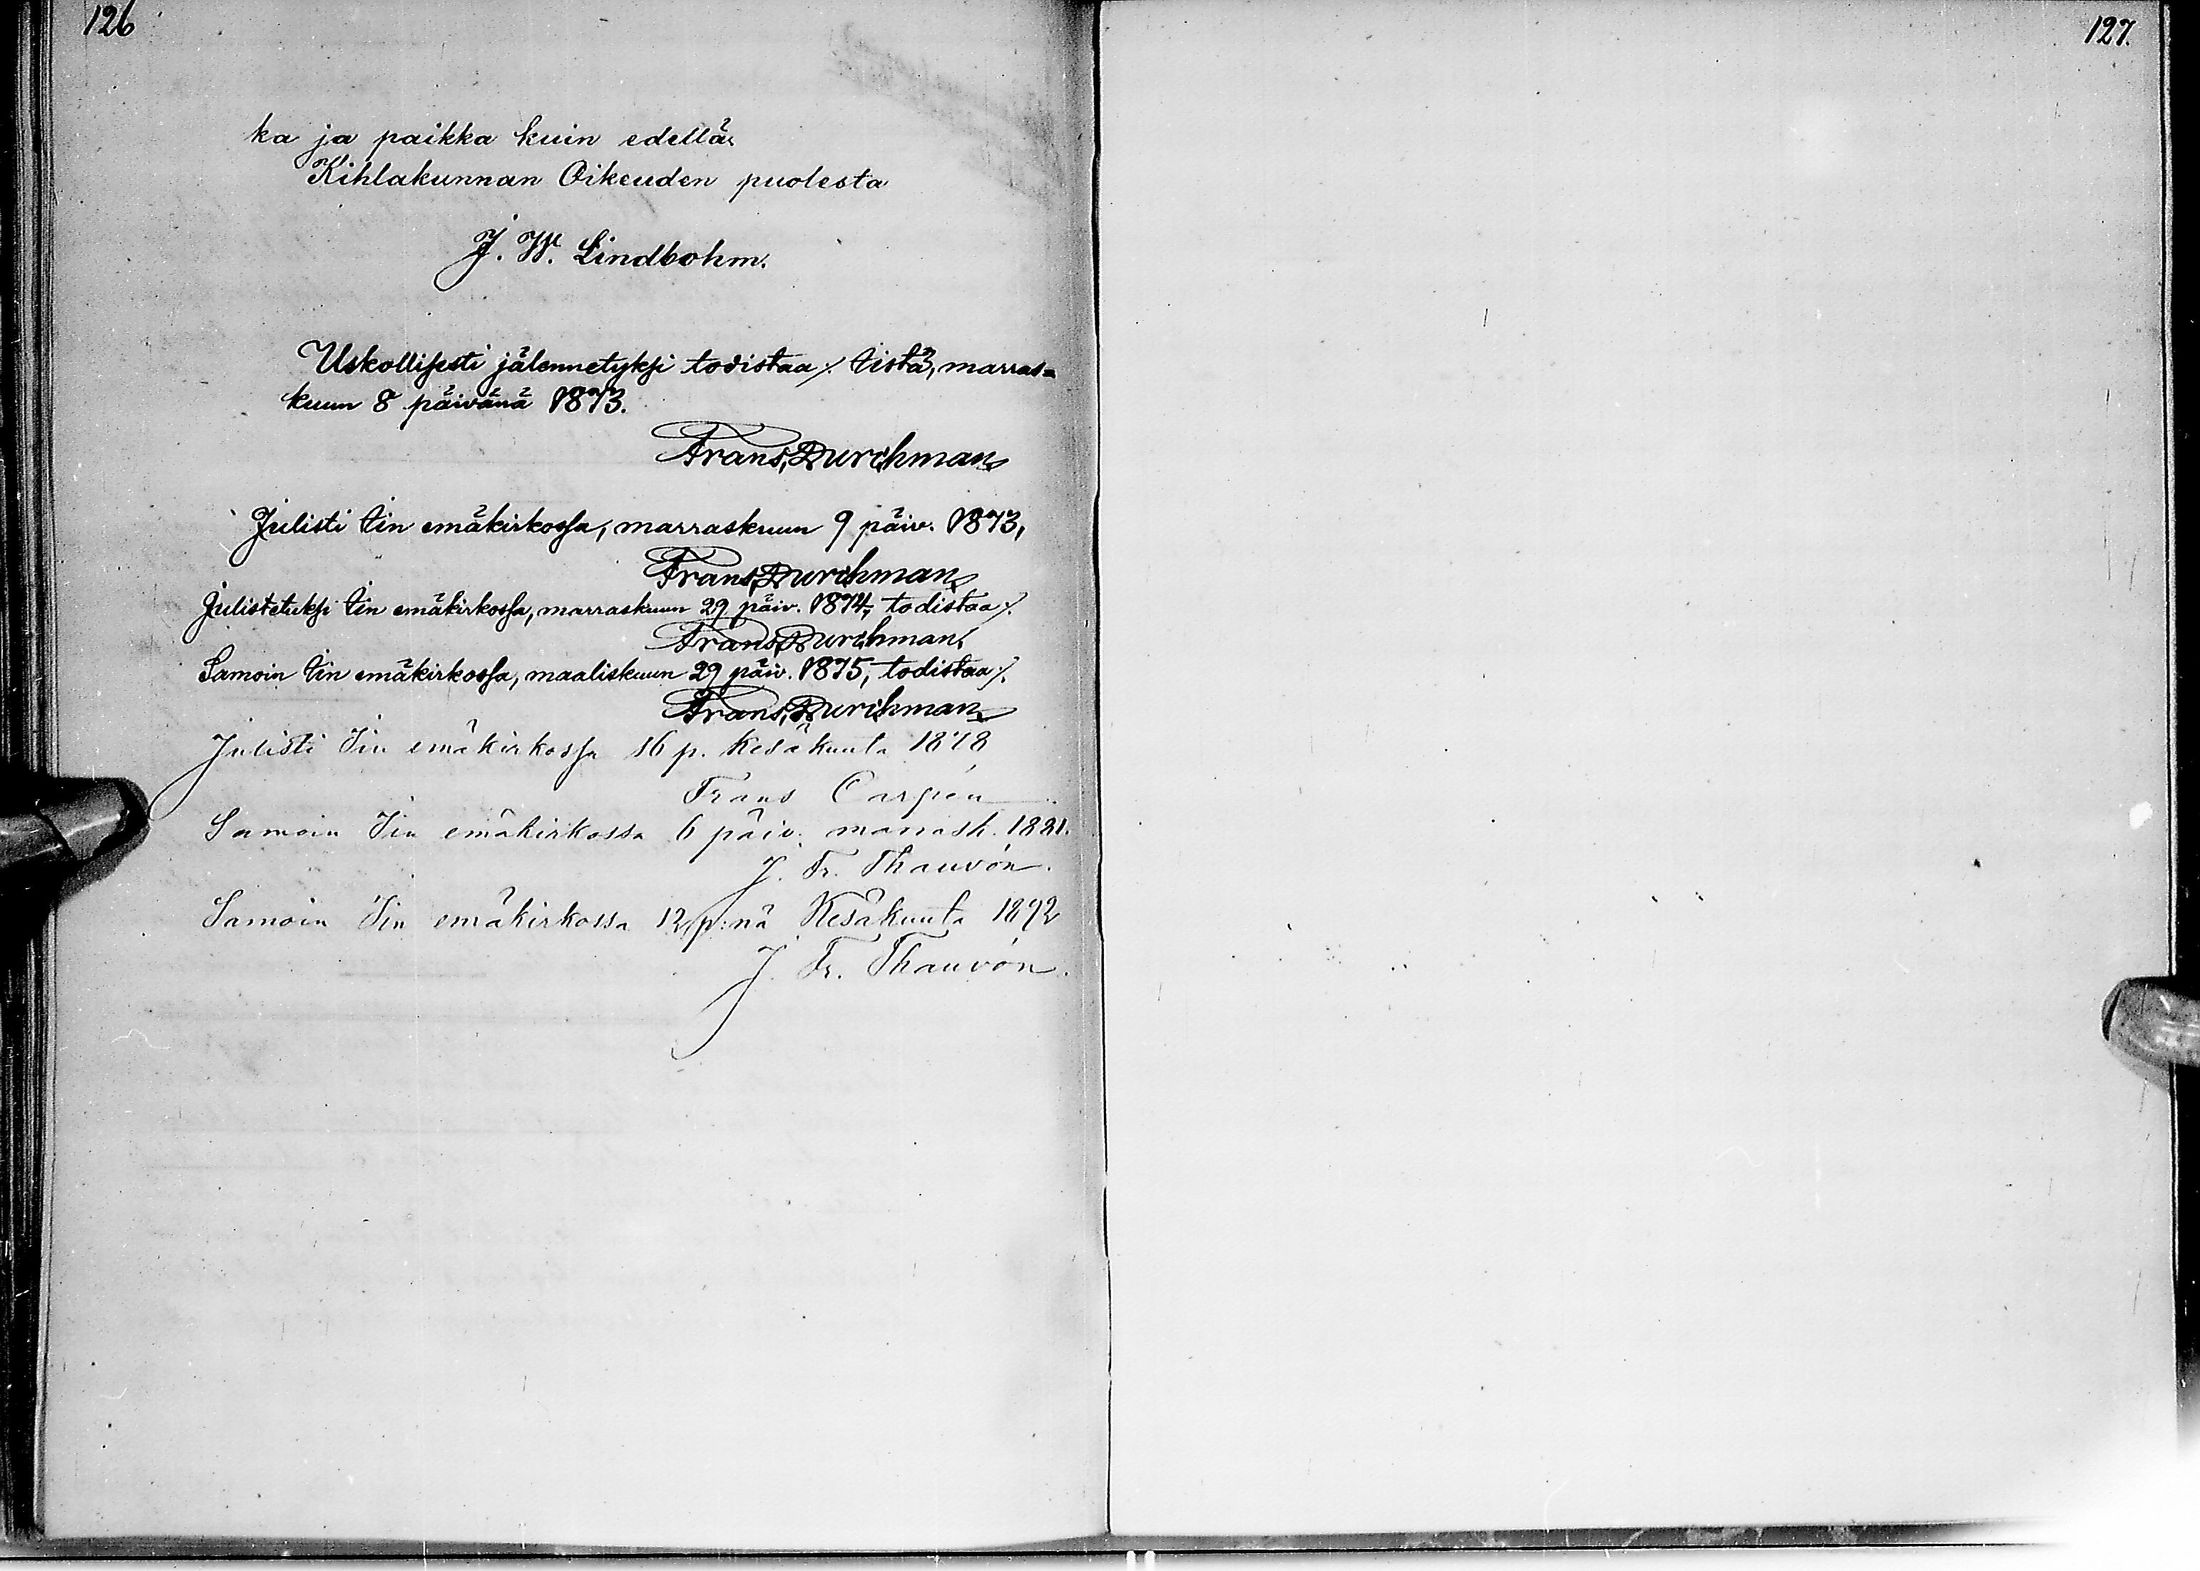 126
ka ja paikka kuin edellä.
Kihlakunnan Oikeuden puolesta
J. W. Lindbohm.
Uskollisesti jälennetyksi todistaa /. Iistä, marras=
kuun 8 päivänä 1873.
Frans Durchman
Julisti Iin emäkirkossa, marraskuun 9 päiv. 1873,
Frans Durchman
Julistetuksi Iin emäkirkossa, marraskuun 29 päiv. 1874, todistaa /.
Frans Durchman.
Samoin Iin emäkirkossa, maaliskuun 29 päiv. 1875, todistaa /.
Frans Durchman
Julisti Iin emäkirkossa 16 p. Kesäkuuta 1878
Frans
Samoin Iin emäkirkossa 6 päiv. marrask. 1881.
J. Fr. Thauvón.
Samoin Iin emäkirkossa 12 p:nä Kesäkuuta 1892
J. Fr. Thauvón.
127.